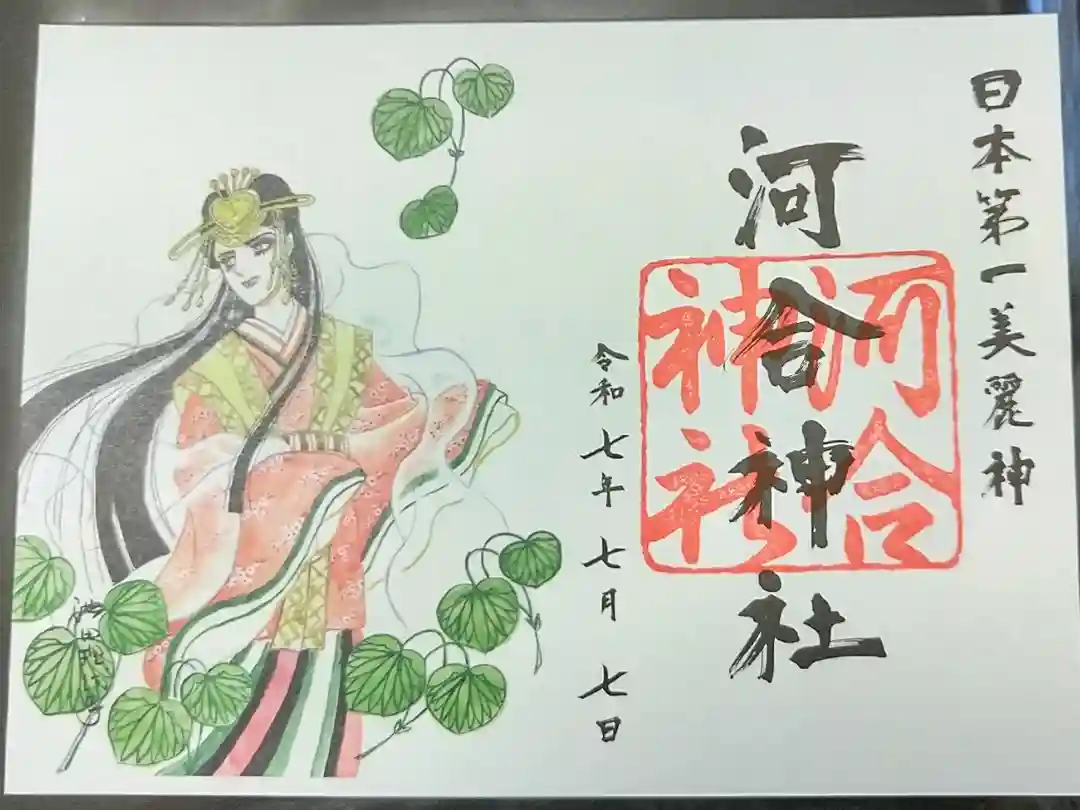 日本第一美麗神
河合神社
河合
神社
令和七年七月七日